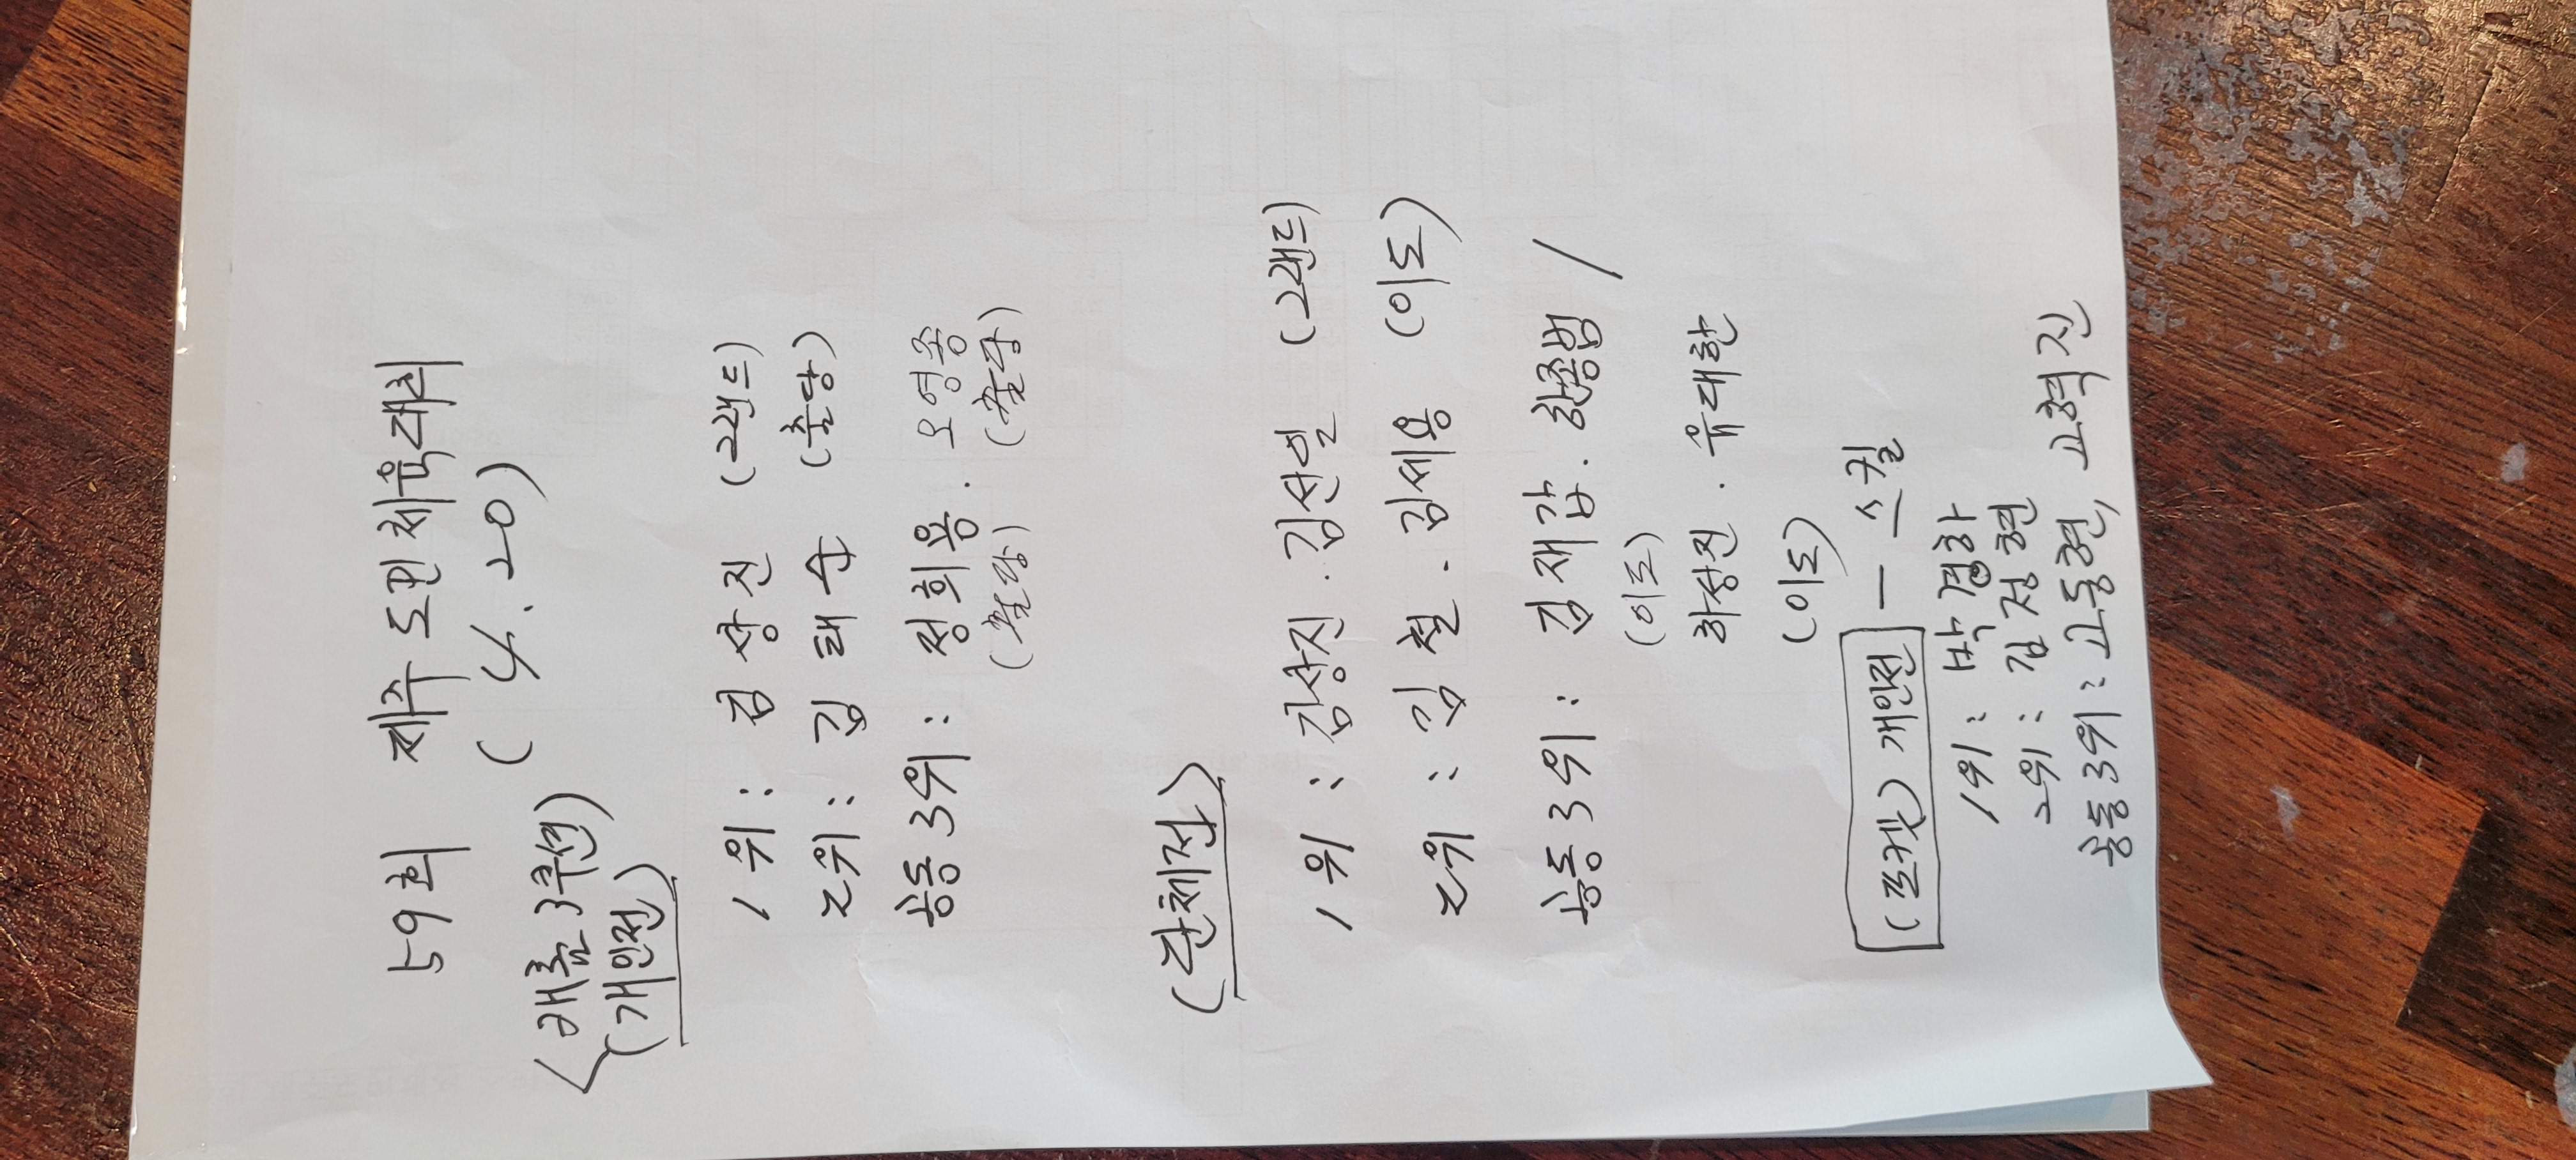 59회 제주도민체육대회
(4.20)
<캐롬 3쿠션)
(개인전)
1위 : 김상진 (그랜드)
2위 : 김태수 (출당)
공동 3위 : 정희용 . 오영종
(출당) (출당)
(단체전)
1위 : 김상진 . 김선일 (그랜드)
2위 : 김철 . 김세용 (이도)
공동 3위 : 김재갑 . 한종범 /
(이도)
하상진 . 유대한
(이도)
(포켓) 개인전 - 스킬
1위 : 박경하
2위 : 김정현
공동 3위 : 고동현, 고혁진